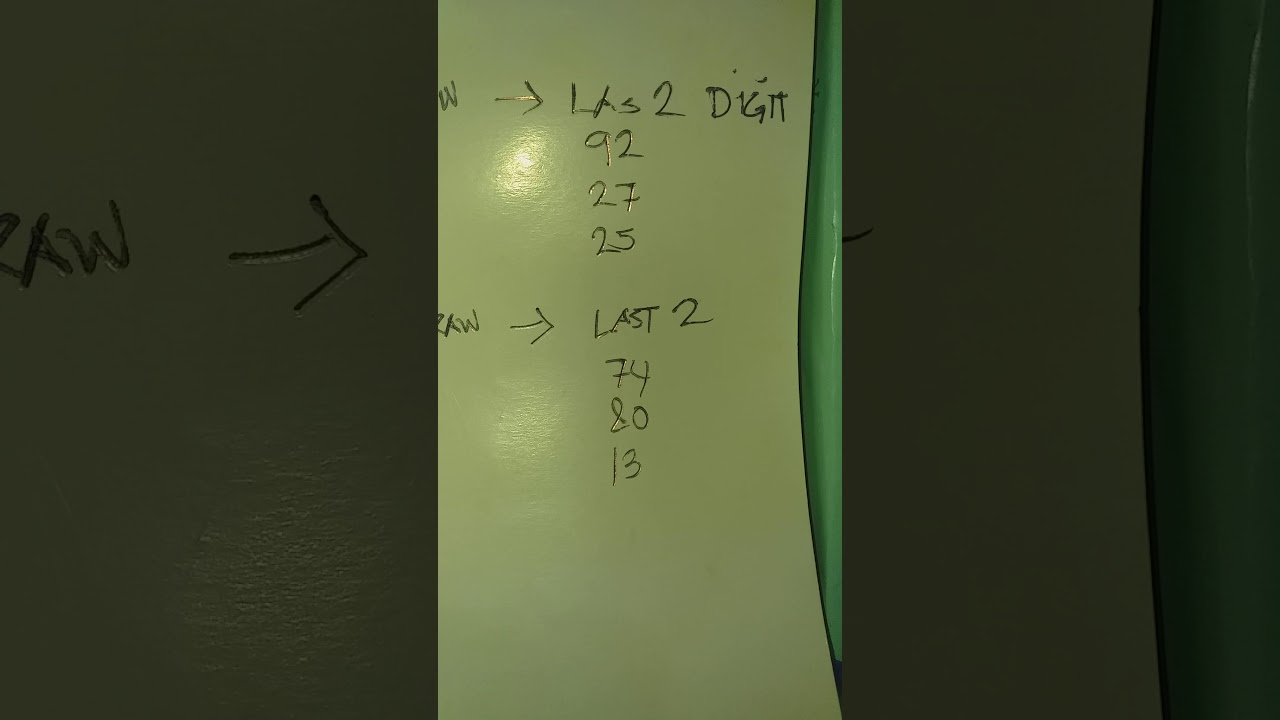 W → LAS 2 DIGIT
92
27
25
RAW →
RAW → LAST 2
74
80
13